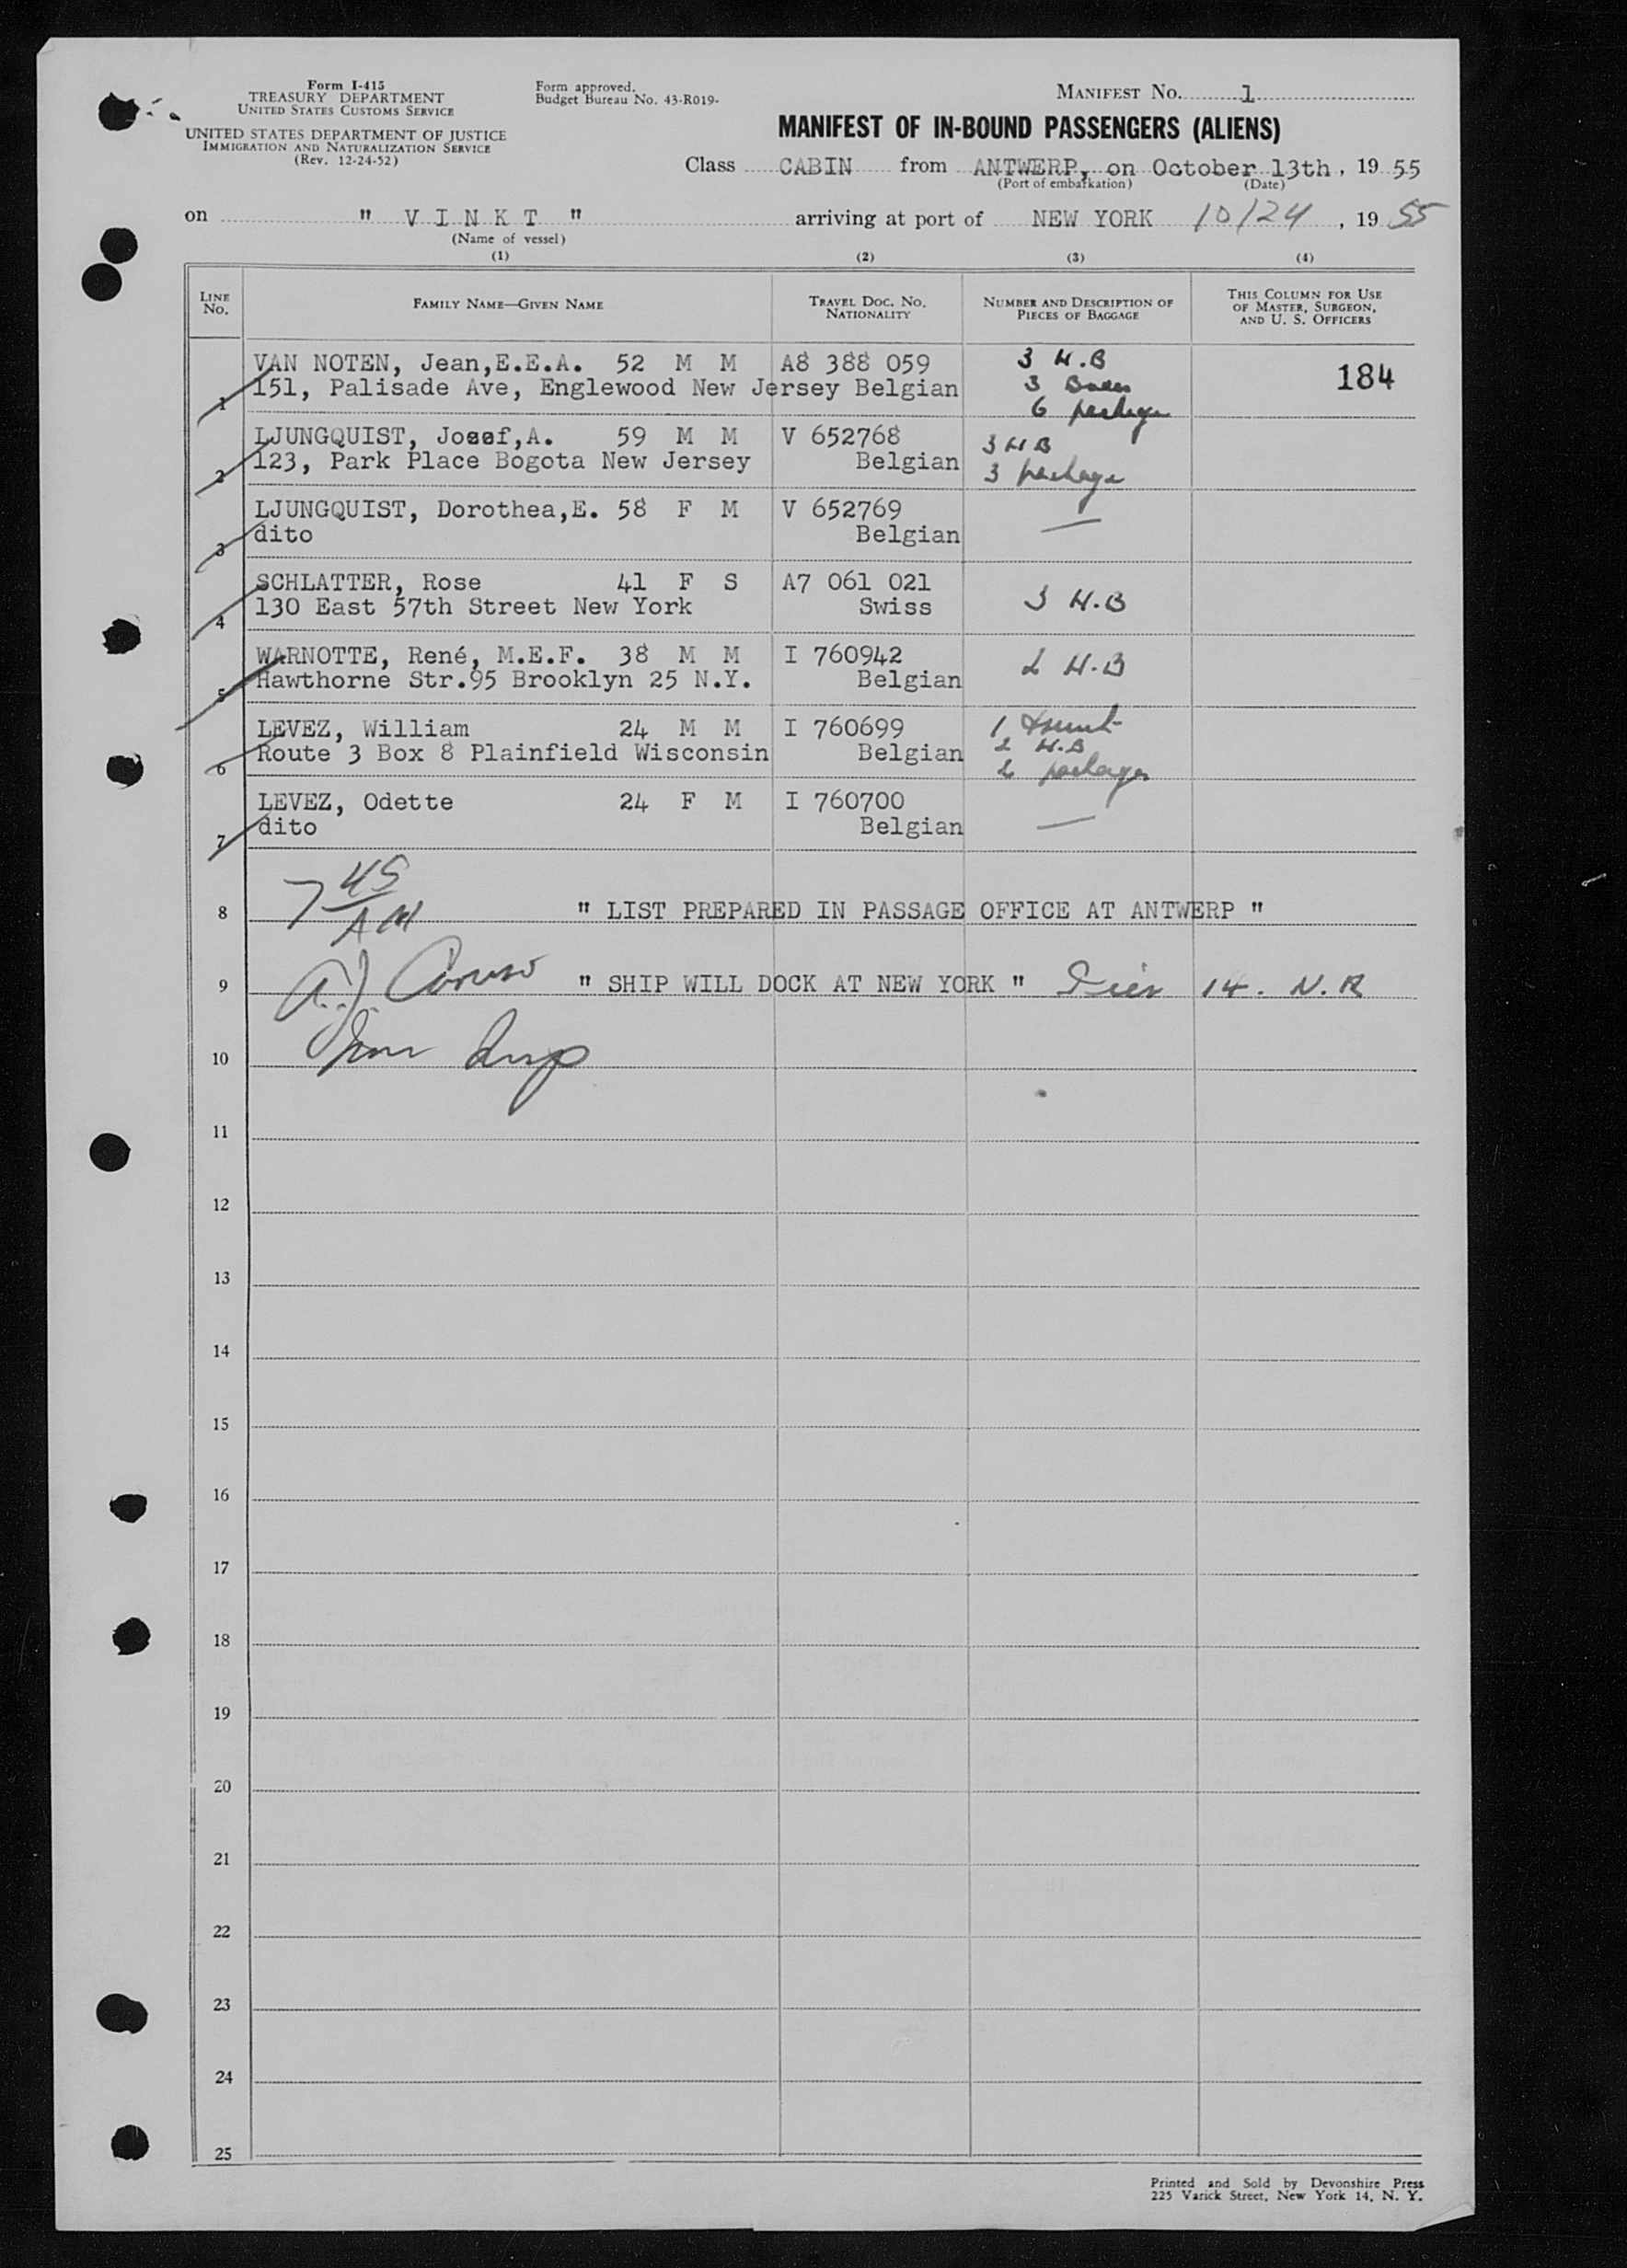 Form I-415
TREASURY DEPARTMENT
UNITED STATES CUSTOMS SERVICE
UNITED STATES DEPARTMENT OF JUSTICE
IMMIGRATION AND NATURALIZATION SERVICE
(Rev. 12-24-52)
Form approved.
Budget Bureau No. 43-R019-
MANIFEST NO. 1
MANIFEST OF IN-BOUND PASSENGERS (ALIENS)
Class CABIN from ANTWERP, on October 13th, 1955
(Port of embarkation) (Date)
on " V I N K T " arriving at port of NEW YORK 10/24, 1955
(Name of vessel)
(1) (2) (3) (4)
LINE NO. FAMILY NAME—GIVEN NAME TRAVEL DOC. NO. NATIONALITY NUMBER AND DESCRIPTION OF PIECES OF BAGGAGE THIS COLUMN FOR USE OF MASTER, SURGEON, AND U. S. OFFICERS
1 VAN NOTEN, Jean,E.E.A. 52 M M A8 388 059 3 H.B 184
151, Palisade Ave, Englewood New Jersey Belgian 3
6 package
2 LJUNGQUIST, Josef,A. 59 M M V 652768 3 H B
123, Park Place Bogota New Jersey Belgian 3 package
3 LJUNGQUIST, Dorothea,E. 58 F M V 652769 —
dito Belgian
4 SCHLATTER, Rose 41 F S A7 061 021 3 H.B
130 East 57th Street New York Swiss
5 WARNOTTE, René, M.E.F. 38 M M I 760942 2 H.B
Hawthorne Str.95 Brooklyn 25 N.Y. Belgian
6 LEVEZ, William 24 M M I 760699 1 trunk
Route 3 Box 8 Plainfield Wisconsin Belgian 2 H.B
2 packages
7 LEVEZ, Odette 24 F M I 760700 —
dito Belgian
8 7 45 AM " LIST PREPARED IN PASSAGE OFFICE AT ANTWERP "
9 A.J. Caruso " SHIP WILL DOCK AT NEW YORK " Pier 14. N.R
10 Imm Insp
11
12
13
14
15
16
17
18
19
20
21
22
23
24
25
Printed and Sold by Devonshire Press
225 Varick Street, New York 14, N. Y.